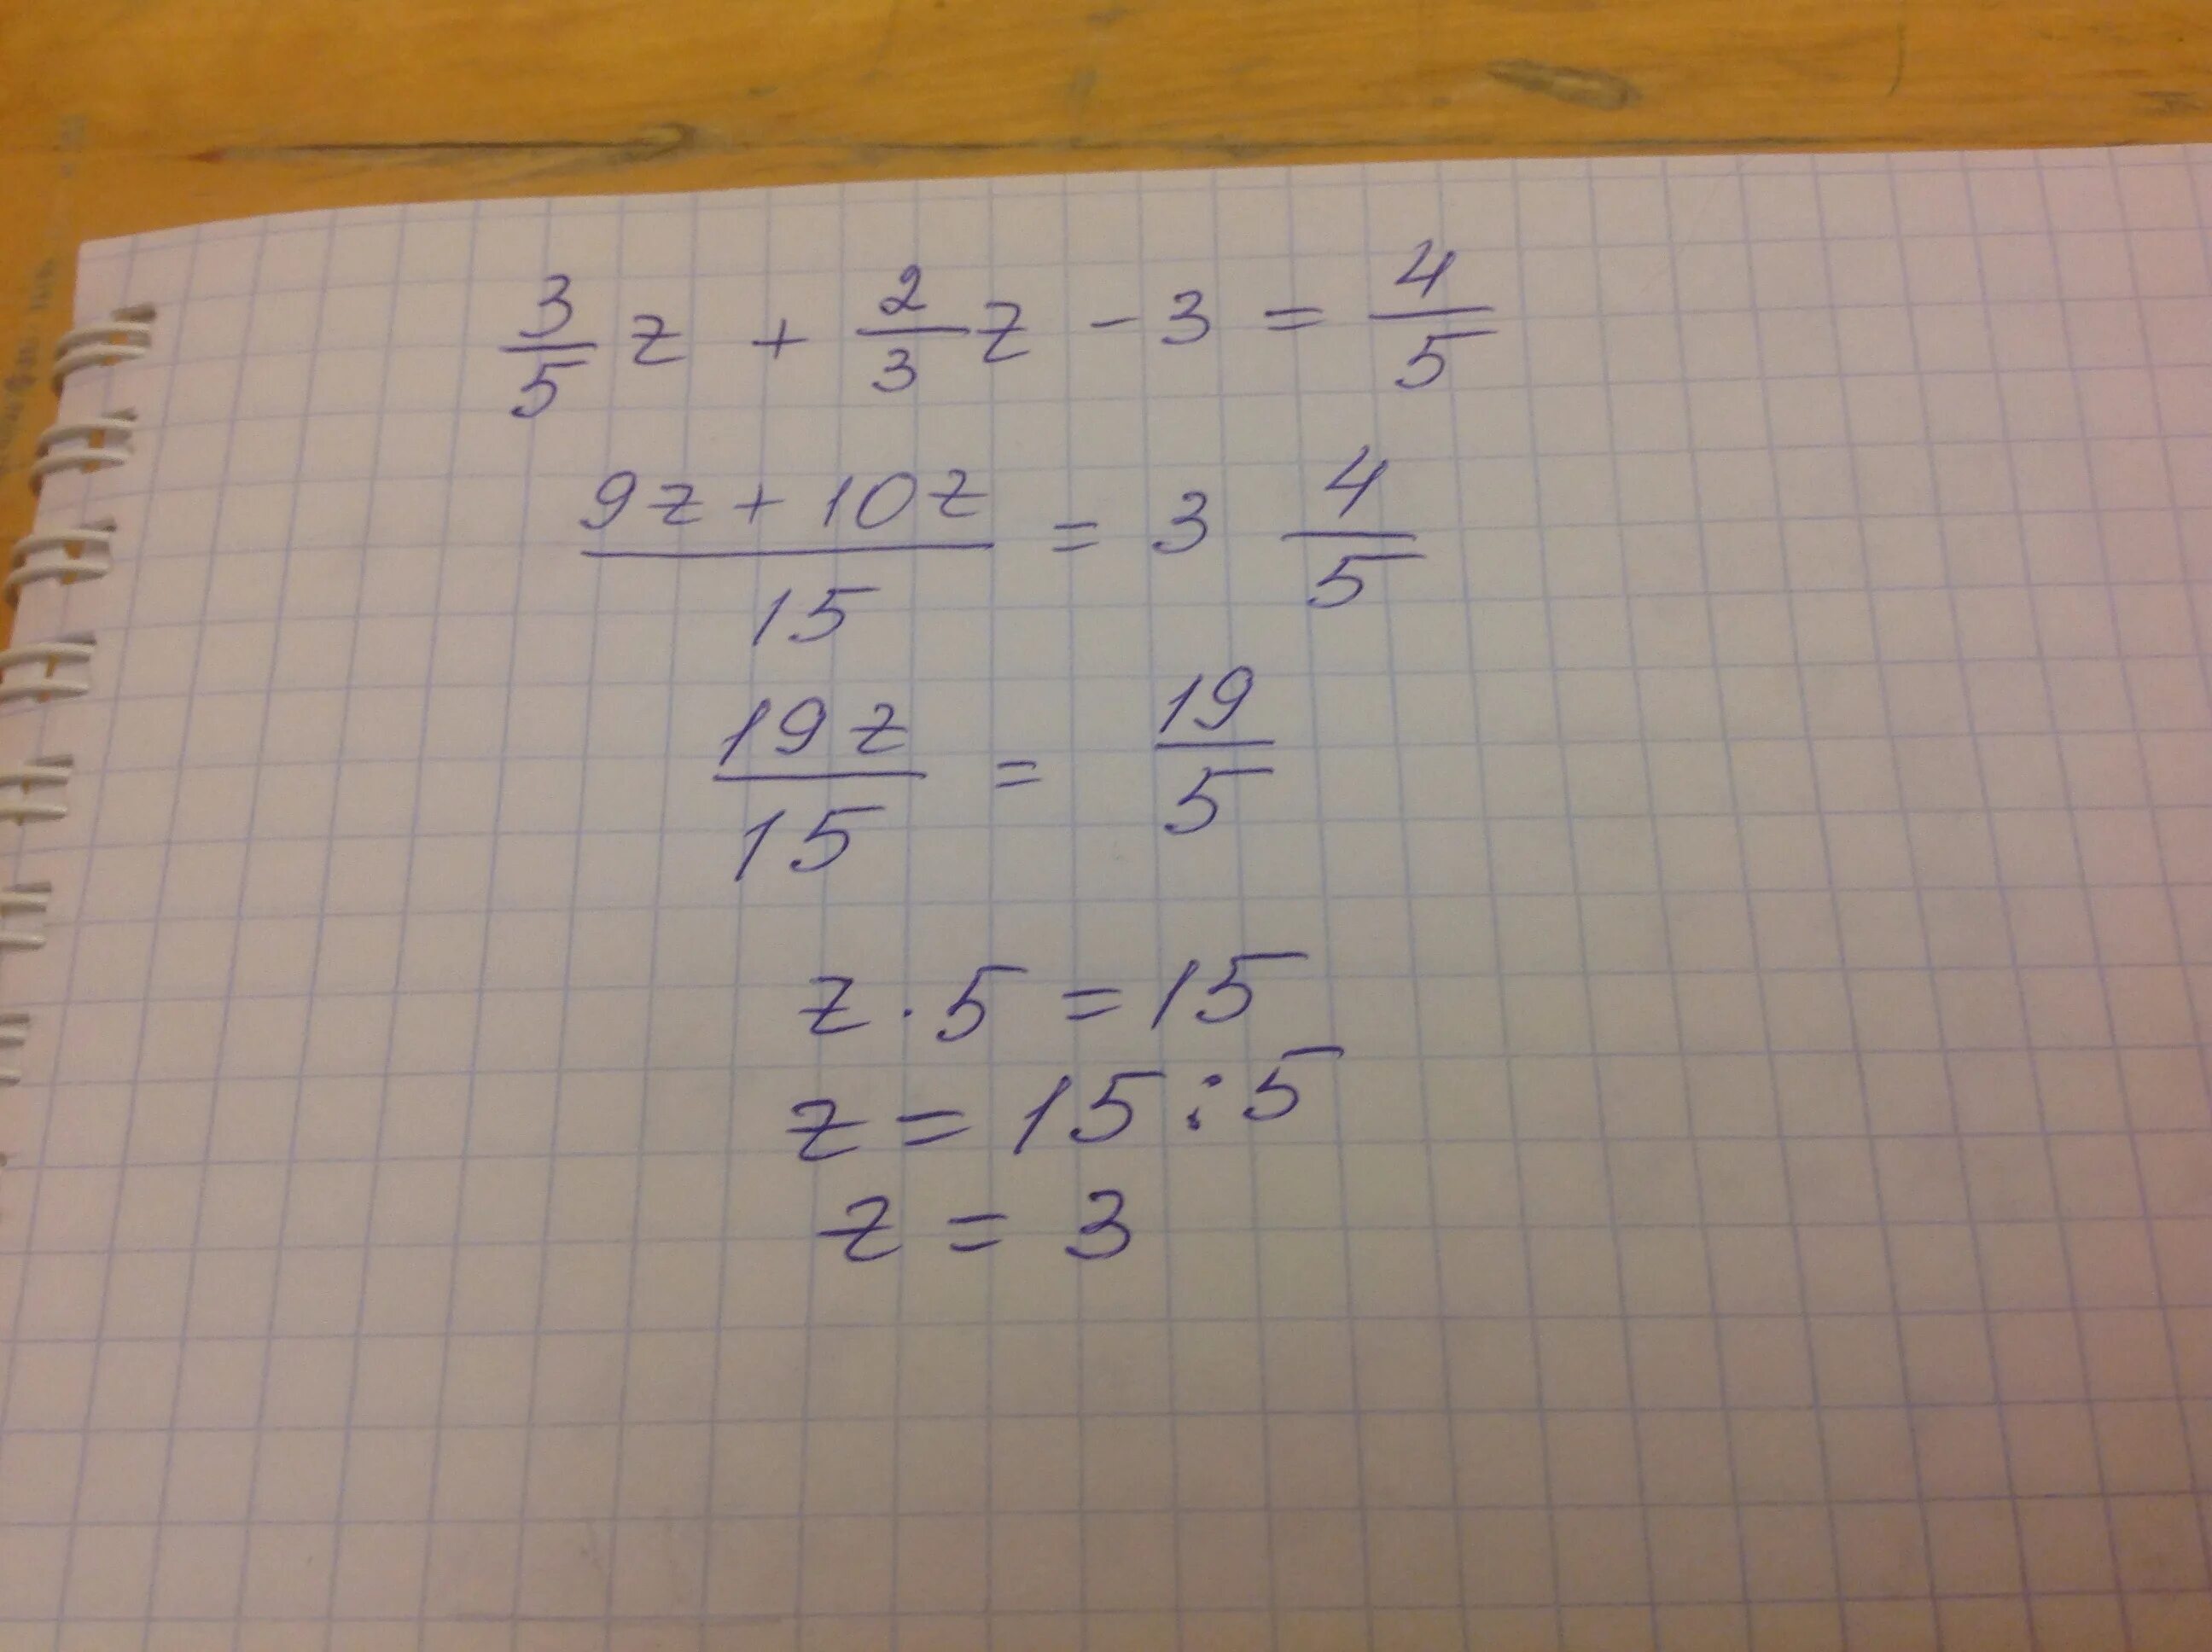 3/5 z + 2/3 z - 3 = 4/5
(9z + 10z)/15 = 3 4/5
19z/15 = 19/5
z · 5 = 15
z = 15 : 5
z = 3